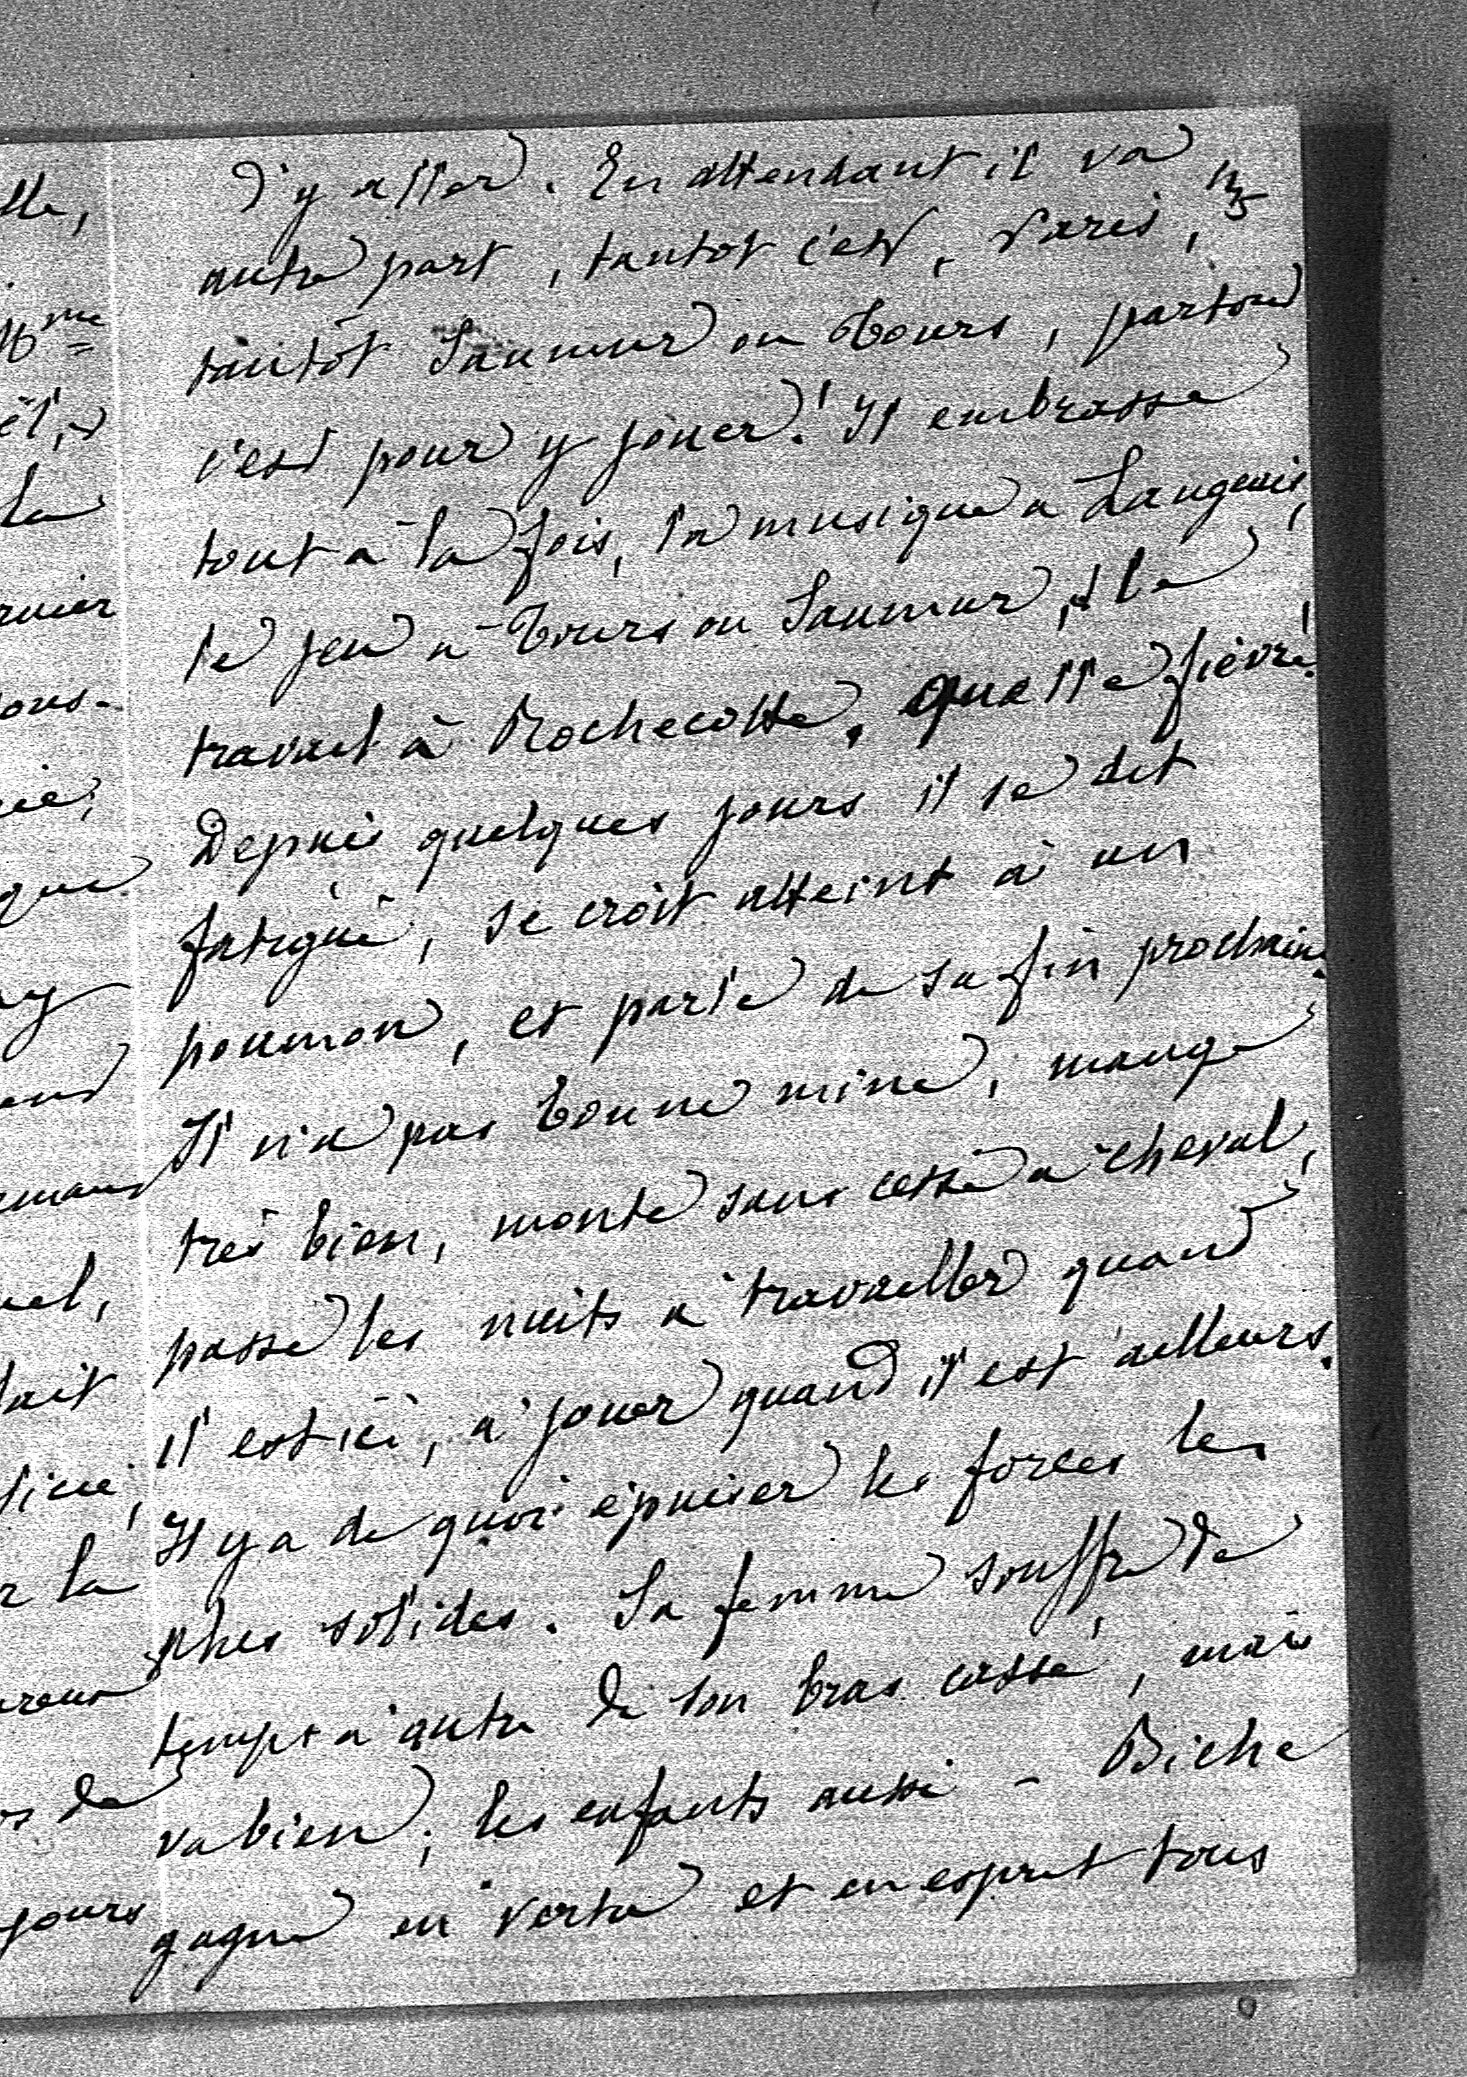 d'y aller. En attendant il va
autre part, tantot c'est, Paris,
tantôt Saumur ou Tours, partout
c'est pour y jouer! Il embrasse
tout à la fois, la musique a Langeais,
le jeu a Tours ou Saumur, & le
travail à Rochecotte. Quelle fièvre!
Depuis quelques jours il se dit
fatigué, se croit atteint à un
poumon, et parle de sa fin prochaine.
Il n'a pas bonne mine, mange
très bien, monte sans cesse a cheval,
passe les nuits a travailler quand
il est ici, a jouer quand il est ailleurs.
Il y a de quoi épuiser les forces les
plus solides. Sa femme souffre de
temps a autre de son bras cassé, mais
va bien; les enfants aussi - Biche
gagne en vertu et en esprit tous